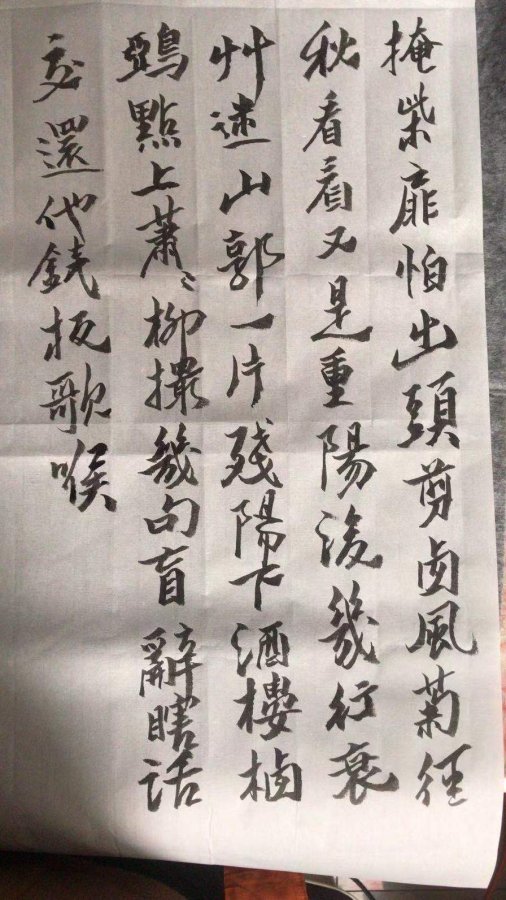 掩柴扉怕出頭剪西風菊径
秋看看又是重陽後幾行衰
艸迷山郭一片殘陽下酒樓栖
鴉點上蕭〻柳撮幾句盲辭瞎話
交還他銕板歌喉